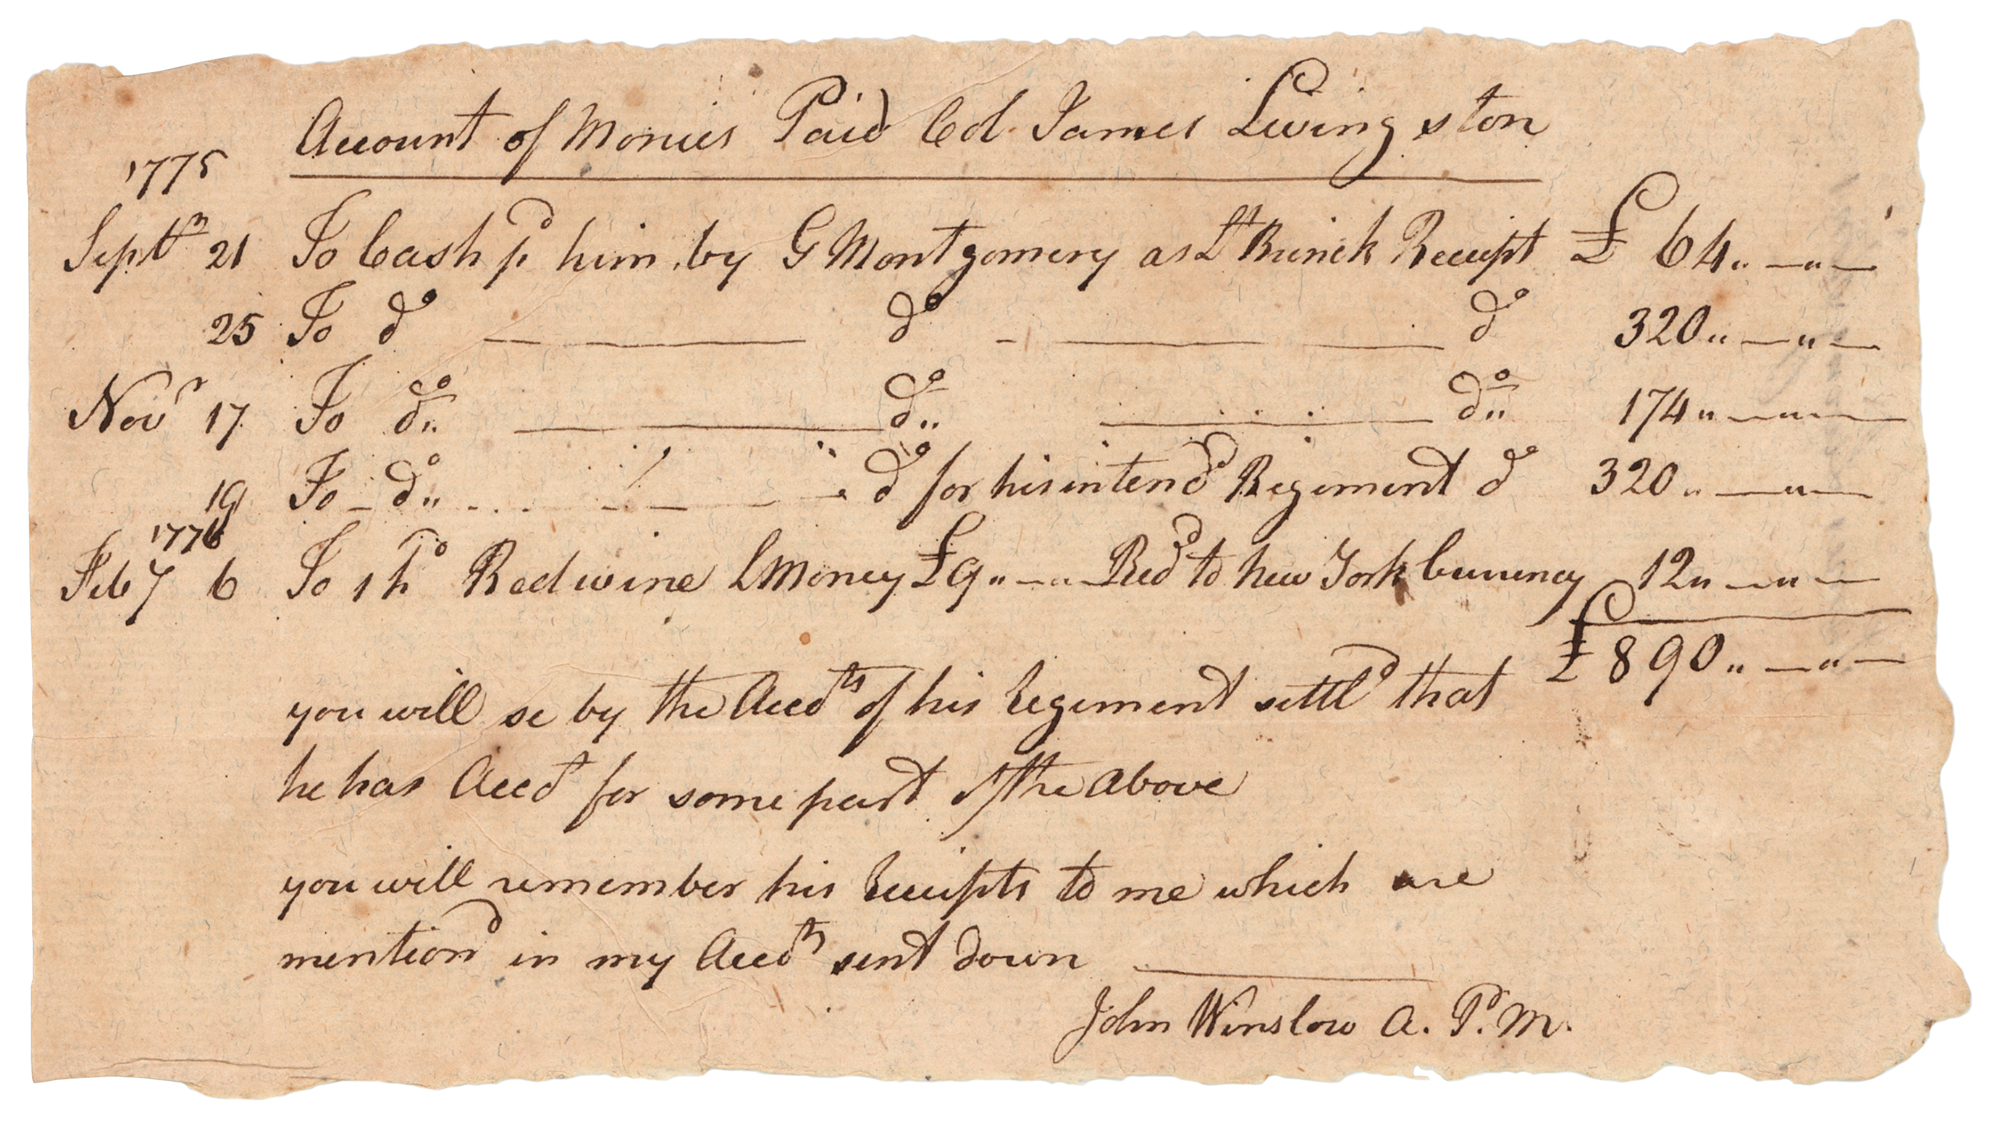 Account of Monies Paid Col. James Livingston
1775
Septr 21 To Cash pd him by G Montgomery as Receipt £ 64 " — " —
25 To do —— do —— do 320 " — " —
Novr 17 To do " —— do " —— do " 174 " — " —
19 To do " —— do for his intend Regiment do 320 " — " —
1776
Feby 6 To 1 hd Red wine L Money £9 " — " — Red to New York Currency 12 " — " —
£ 890 " — " —
you will se by the Accts of his Regiment settld that
he has Acctd for some part of the above
you will remember his Receipts to me which are
mentiond in my Accts sent down
John Winslow A. P. M.